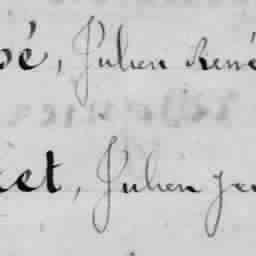 pé, Julien René
et, Julien Je